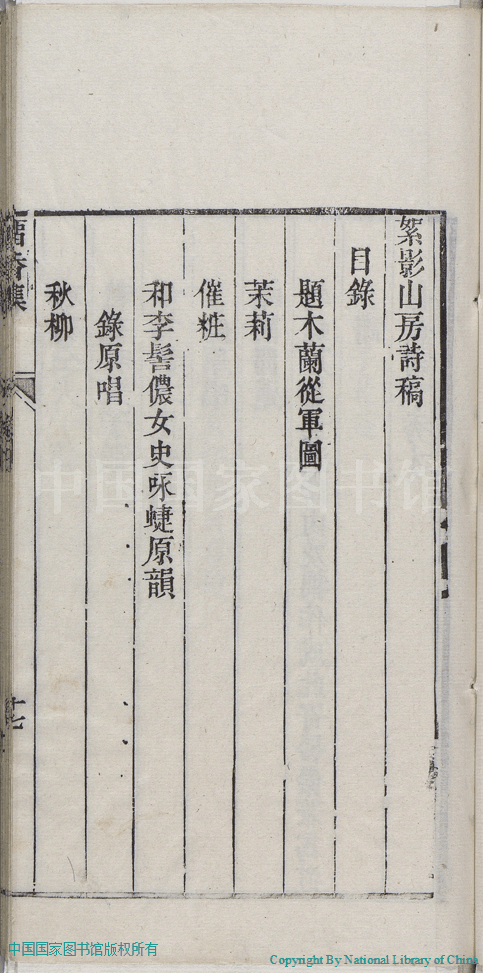 絮影山房詩稿
目錄
題木蘭從軍圖
茉莉
催粧
和李髻儂女史咏蜨原韻
錄原唱
秋柳
香集
十七
中国国家图书馆
中国国家图书馆版权所有
Copyright By National Library of China